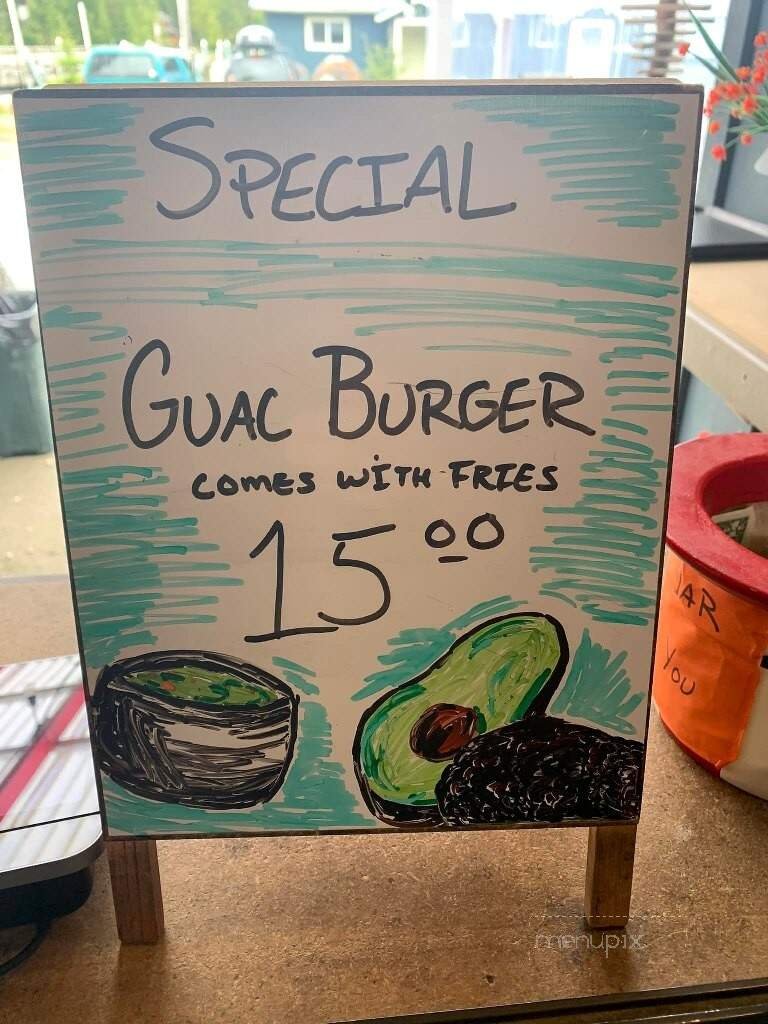 SPECIAL
GUAC BURGER
COMES WITH FRIES
15.00
JAR
YOU
menupix